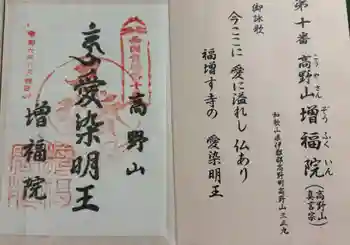 高野山
愛染明王
増福院
第十番 高野山 増福院（高野山真言宗）
こうやさん
ぞうふくいん
和歌山県伊都郡高野町高野山三三九
御詠歌
今ここに 愛に溢れし 仏あり
福増す寺の 愛染明王